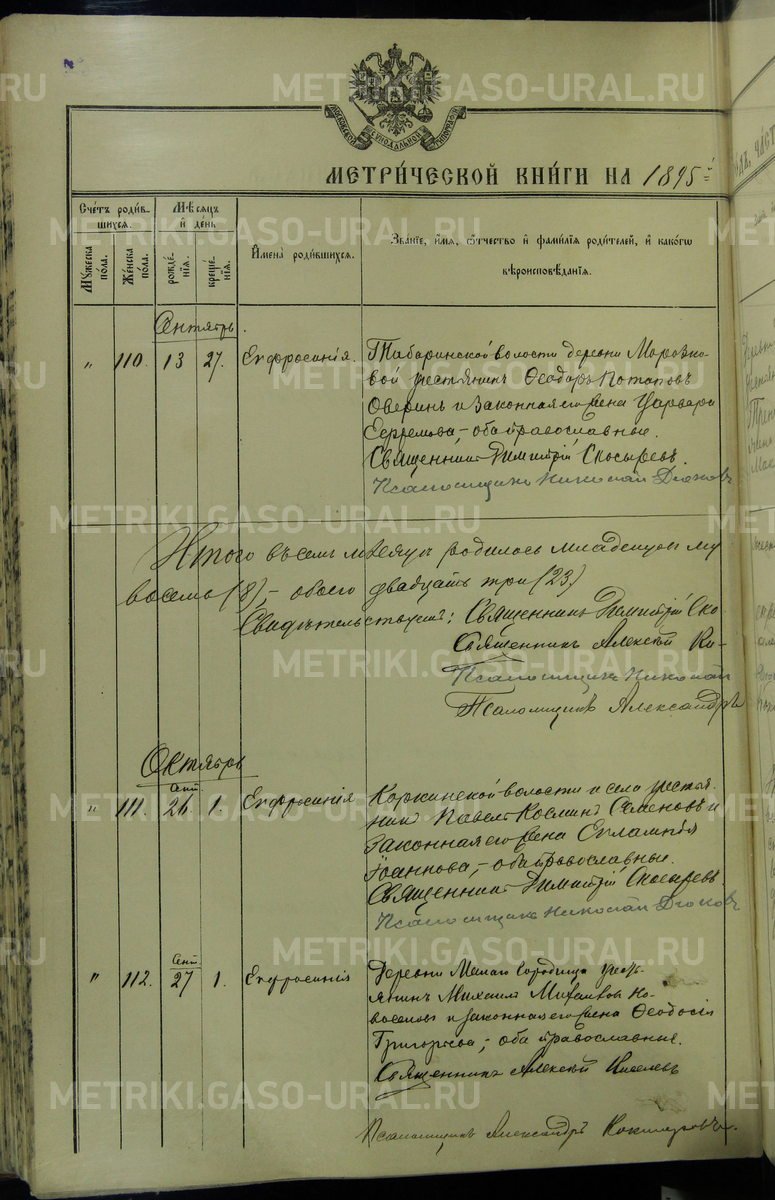 МЕТРИ́ЧЕСКОЙ КНИ́ГИ НА 1895й
Сче́тъ роди́в-
шихся.
Мѣ́сяцъ
и҆ де́нь
И҆мена̀ роди́вшихся.
Зва́нїе, и҆́мя, ѻ҆́тчество и҆ фами́лїя роди́телей, и҆ како́гѡ
вѣроисповѣ́данїя.
Мꙋ́жеска
по́ла.
Же́нска
по́ла.
рожде́-
нїя.
креще́-
нїя.
Сентябрь.
" 110. 13 27. Евфросинія.
Табаринской волости деревни Морозко-
вой крестьянинъ Ѳеодоръ Потаповъ
Оверинъ и законная его жена Варвара
Ефремова,- оба православные.
Священникъ Димитрій Скосыревъ.
Псаломщикъ Николай Дьяковъ
Итого въ семъ мѣсяцѣ родилось младенцевъ му
восемь (8),- обоего двадцать три (23)
Свидѣтельствуемъ: Священникъ Димитрій Ско
Священникъ Алексѣй Ки-
Псаломщикъ Николай
Псаломщикъ Александръ
Октябрь
" 111. Сент. 26. 1. Евфросинія
Коркинской волости и села крестья-
нинъ Павелъ Косминъ Семеновъ и
законная его жена Евлампія
Іоаннова,- оба православные.
Священникъ Димитрій Скосыревъ.
Псаломщикъ Николай Дьяковъ
" 112. Сент. 27 1. Евфросинія
Деревни Малаго Городища кресть-
янинъ Михаилъ Михайловъ Но-
воселовъ и законная его жена Ѳеодосія
Григорьева,- оба православные.
Священникъ Алексѣй Киселевъ
Псаломщикъ Александръ Кокшаровъ.
METRIKI.GASO-URAL.RU